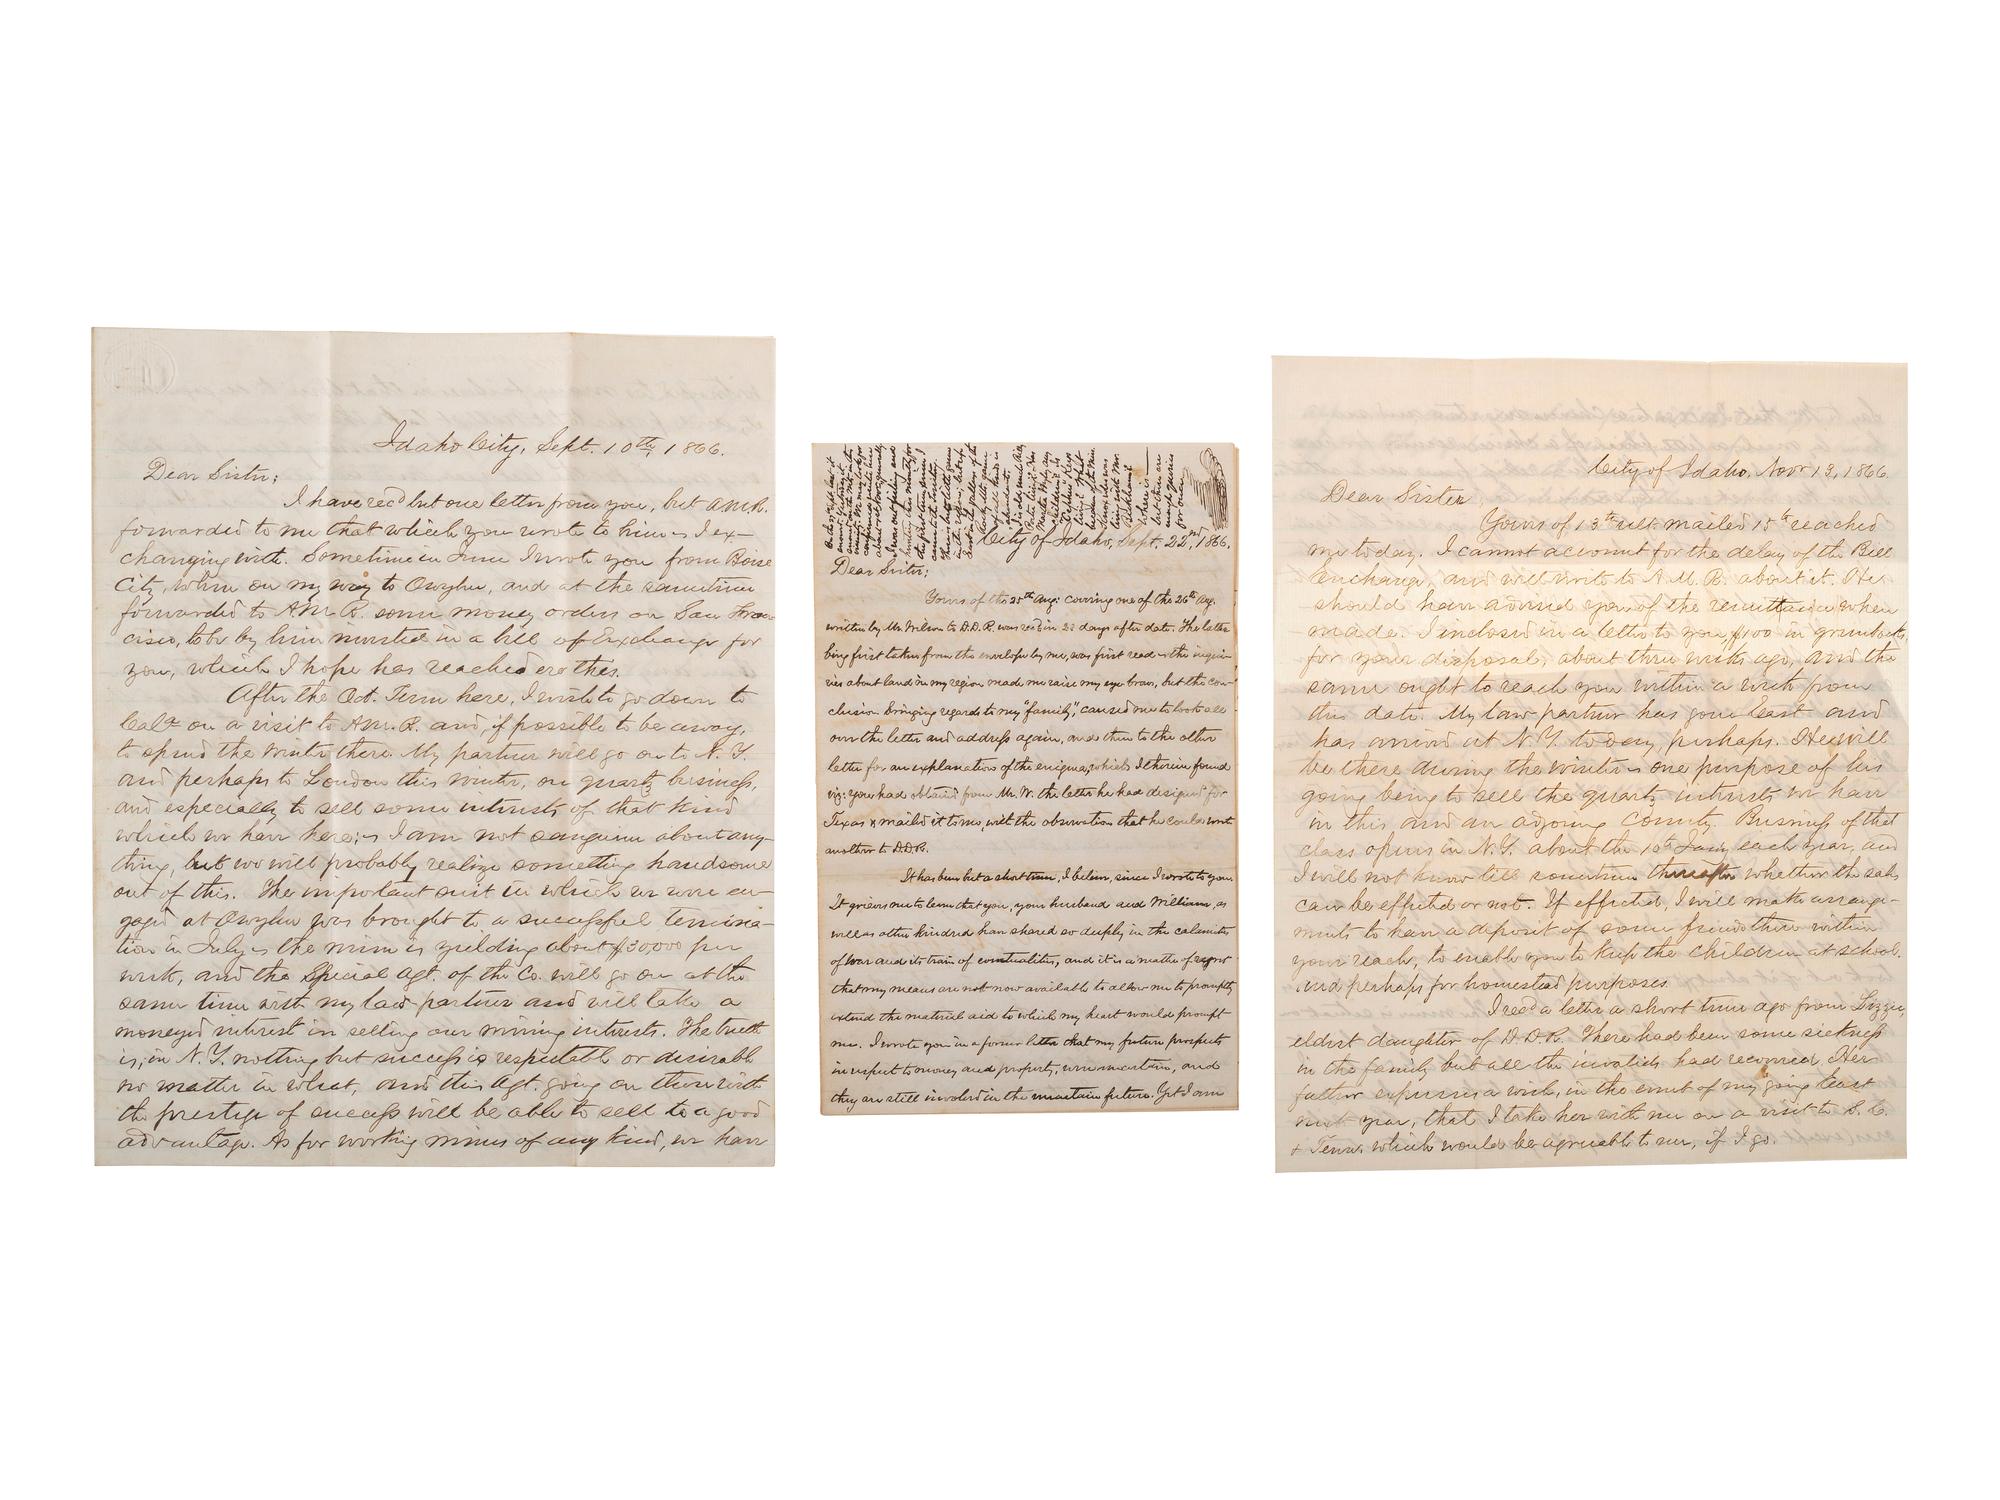 Idaho City, Sept. 10th, 1866.
Dear Sister;
I have rec'd but one letter from you, but A.M.R.
forwarded to me that which you wrote to him - I ex-
changing with. Sometime in June I wrote you from Boise
City, when on my way to Owyhee, and at the same time
forwarded to A.M.R. some money orders on San Fran-
cisco, to be by him invested in a bill of Exchange for
you, which I hope has reached ere this.
After the Oct. Term here, I wish to go down to
Cala on a visit to A.M.R. and, if possible to be away,
to spend the winter there. My partner will go on to N.Y.
and perhaps to London this winter, on quartz business,
and especially to sell some interests of that kind
which we have here; - I am not sanguine about any-
thing, but we will probably realize something handsome
out of this. The important suit in which we were en-
gaged at Owyhee was brought to a successful termina-
tion in July - the mine is yielding about $30,000 per
week, and the Special Agt. of the Co. will go on at the
same time with my law partner and will take a
moneyed interest in selling our mining interests. The truth
is, in N.Y. nothing but success is respectable or desirable
no matter in what, and this Agt. going on there with
the prestige of success will be able to sell to a good
advantage. As for working mines of any kind, we have
City of Idaho, Sept. 22nd, 1866.
Dear Sister;
Yours of the 25th Aug: covering one of the 26th Aug.
written by Mr. Wilson to D.D.R. was rec'd in 22 days after date. The letter
being first taken from the envelope by me, was first read - the inqui-
ries about land in my region made me raise my eye brows, but the con-
clusion bringing regards to my "family", caused me to look all
over the letter and address again, and then to the other
letter for an explanation of the enigma, which I therein found
viz: you had obtained from Mr. W. the letter he had designed for
Texas & mailed it to me, with the observation that he could write
another to D.D.R.
It has been but a short time, I believe, since I wrote to you.
It grieves me to learn that you, your husband and William, as
well as other kindred have shared so deeply in the calamities
of war and its train of eventualities, and it is a matter of regret
that my means are not now available to allow me to promptly
extend the material aid to which my heart would prompt
me. I wrote you in a former letter that my future prospects
in respect to money and property, were uncertain, and
they are still involved in the uncertain future. Yet I am
City of Idaho, Nov 13, 1866.
Dear Sister,
Yours of 13th ult. mailed 15th reached
me to day. I cannot account for the delay of the Bill
Exchange, and will write to A.M.R. about it. He
should have advised you of the remittance when
made. I inclosed in a letter to you, $100 in greenbacks,
for your disposal, about three weeks ago, and the
same ought to reach you within a week from
this date. My law partner has gone East and
has arrived at N.Y. to day, perhaps. He will
be there during the winter - one purpose of his
going being to sell the quartz interests we have
in this and an adjoing County. Business of that
class opens in N.Y. about the 10th Jany. each year, and
I will not know till sometime thereafter whether the sale
can be effected or not. If effected, I will make arrange-
ments to have a deposit of some funds there within
your reach, to enable you to keep the children at school,
and perhaps for homestead purposes.
I rec'd a letter a short time ago from Lizzie,
eldest daughter of D.D.R. There had been some sickness
in the family but all the invalids had recovered. Her
father expresses a wish, in the event of my going East
next year, that I take her with me on a visit to S.C.
& Tenn. which would be agreeable to me, if I go.